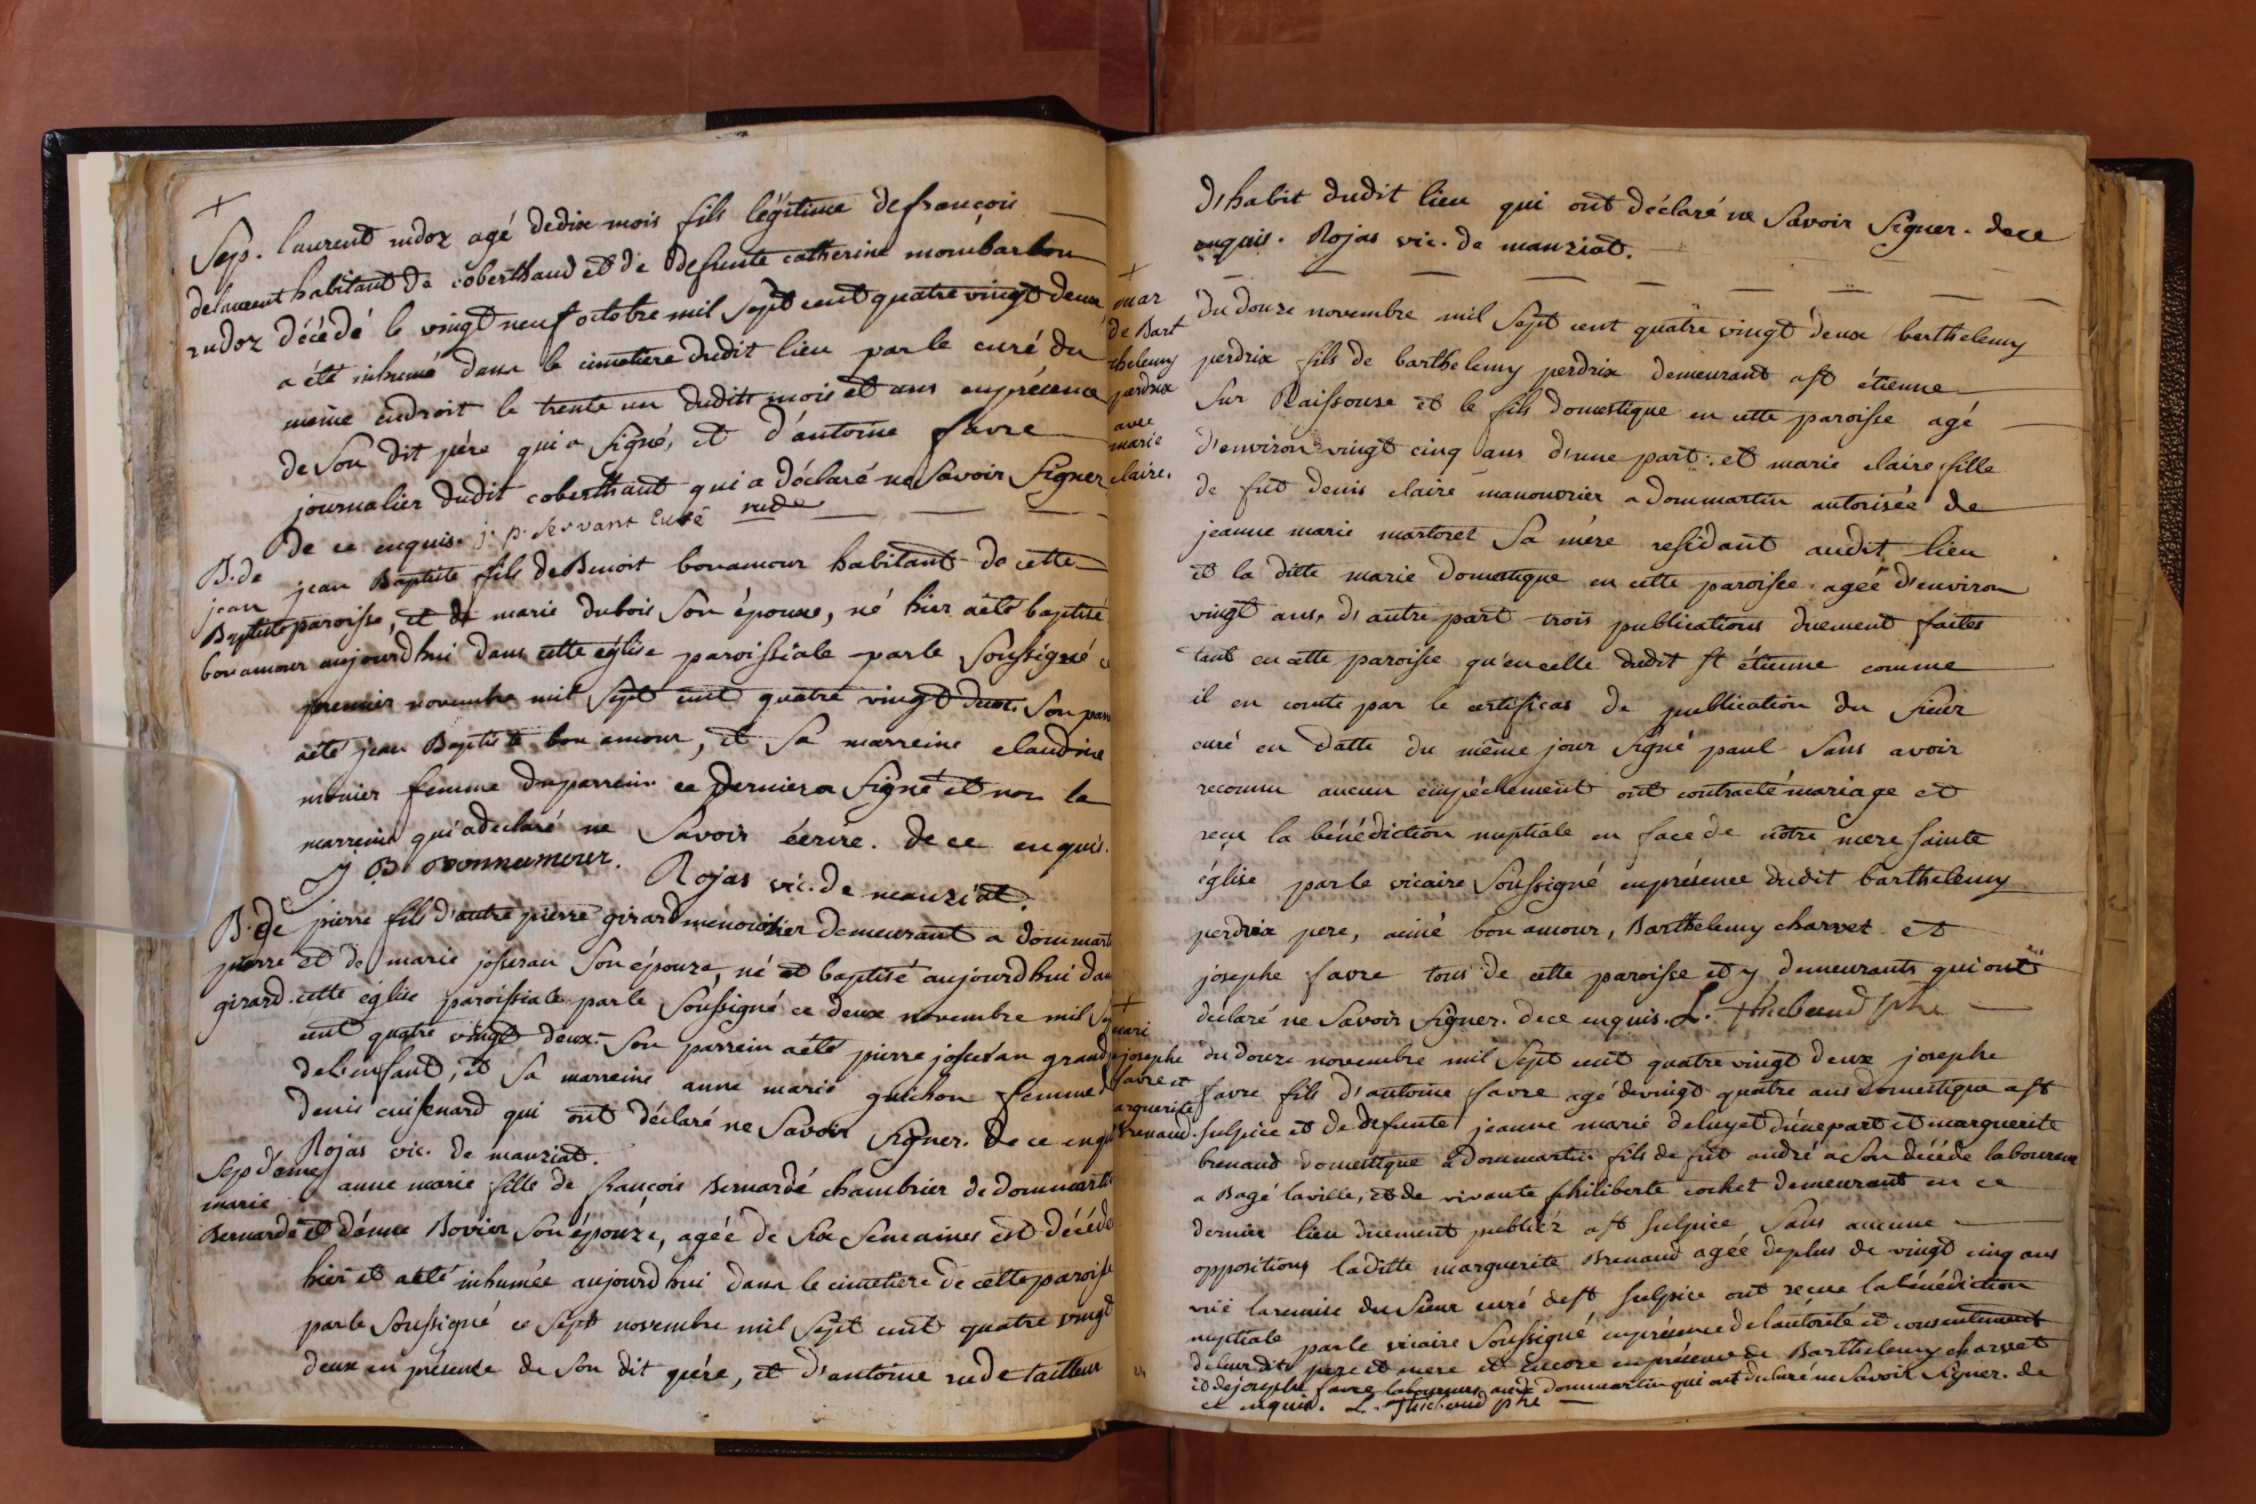 +
Sep. laurent rudoz agé de dix mois fils légitime de françois
de laurent habitant de coberthaud et de defunte catherine mombarbon
rudoz décédé le vingt neuf octobre mil sept cent quatre vingt deux
a été inhumé dans le cimetiere dudit lieu par le curé du
même endroit le trente un dudit mois et ans enprésence
de son dit père qui a signé, et d'antoine favre
journalier dudit coberthaut qui a déclaré ne savoir signer
de ce enquis. j. p. servant curé rude
B. de jean Baptiste fils de Benoit bonamour habitant de cette
jean
Baptiste paroisse, et de marie dubois son épouse, né hier aété baptisé
bonamour aujourd'hui dans cette église paroissiale par le soussigné ce
premier novembre mil sept cent quatre vingt deux. Son par
aété jean Baptiste bon amour, et sa marreine claudine
monier femme duparrein ce dernier a signé et non la
marreine qui adeclaré ne savoir écrire. de ce enquis.
J B Bonnamour. Rojas vic. de manziat.
B. de pierre fils d'autre pierre girard menouvrier demeurant a dommart
pierre et de marie josseran son épouze, né et baptisé aujourd'hui dan
girard. cette église paroissiale par le soussigné ce deux novembre mil sep
cent quatre vingt deux. Son parrein aété pierre josseran grand p
de l'enfant, et sa marreine anne marie guichon femme d
denis cuisenard qui ont déclaré ne savoir signer. de ce enqu
Rojas vic. de manziat.
Sep d'anne anne marie fille de françois Bernardé chambrier de dommarti
marie
Bernardé et d'anne Bovier son épouze, agée de six semaines est décéde
hier et aété inhumée aujourd'hui dans le cimetiere de cette paroisse
par le soussigné ce sept novembre mil sept cent quatre vingt
deux en présence de son dit père, et d'antoine rude tailleur
d'habit dudit lieu qui ont déclaré ne savoir signer. de ce
enquis. Rojas vic. de manziat.
+
mar
de Bart
thelemy
perdrix
avec
marie
claire.
du douze novembre mil sept cent quatre vingt deux berthelemy
perdrix fils de barthelemy perdrix demeurant a st étienne
sur Raissouse et le fils domestique en cette paroisse agé
d'environ vingt cinq ans d'une part: et marie claire fille
de fut denis claire manouvrier a dommartin autorisée de
jeanne marie martoret sa mère residant audit lieu
et la ditte marie domestique en cette paroisse agée d'environ
vingt ans, d'autre part trois publications duement faites
tant en cette paroisse qu'en celle dudit st étienne comme
il en conte par le certificas de publication du sieur
curé en datte du même jour signé paul sans avoir
reconnu aucun empéchement ont contracté mariage et
reçu la bénédiction nuptiale en face de nôtre mere sainte
église par le vicaire soussigné enprésence dudit barthelemy
perdrix pere, aimé bon amour, Barthelemy charvet et
josephe favre tous de cette paroisse et y demeurants qui ont
déclaré ne savoir signer. de ce enquis. L. Thiebaud ptre
+
mari
josephe
favre et
arguerite
brenaud.
du douze novembre mil sept cent quatre vingt deux josephe
favre fils d'antoine favre agé de vingt quatre ans domestique a st
sulpice et de defunte jeanne marie deluyet d'une part et marguerite
brenaud domestique a dommartin fils de fut andré a son décéde laboureur
a Bagé laville, et de vivante philiberte cochet demeurant en ce
dernier lieu duement publiéz a st sulpice sans aucune
oppositions laditte marguerite Brenaud agée de plus de vingt cinq ans
vûe la remise du sieur curé de st sulpice ont recue la bénédiction
nuptiale par le vicaire soussigné enprésence de l'autorité et consentement
de leur dits pere et mere et encore en présence de Barthelemy charvet
et de josephe favre laboureurs audit dommartin qui ont declaré ne savoir signer. de
ce enquis. L. Thiebaud ptre